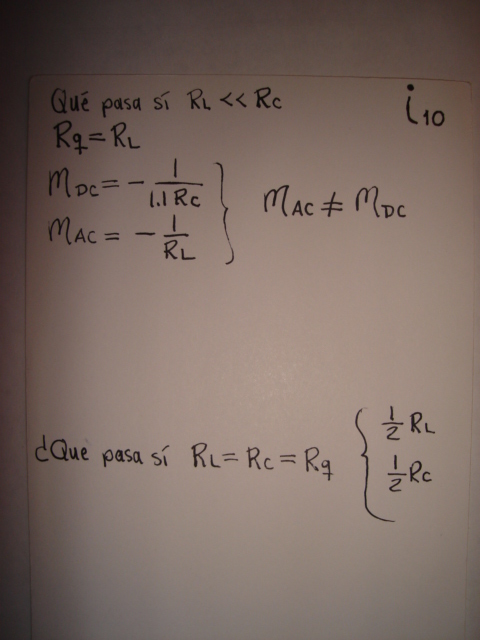 Qué pasa sí RL << Rc
i10
Rq = RL
mDC = - 1/1.1 Rc } mAC ≠ mDC
mAC = - 1/RL
¿Que pasa sí RL = Rc = Rq { 1/2 RL
1/2 Rc